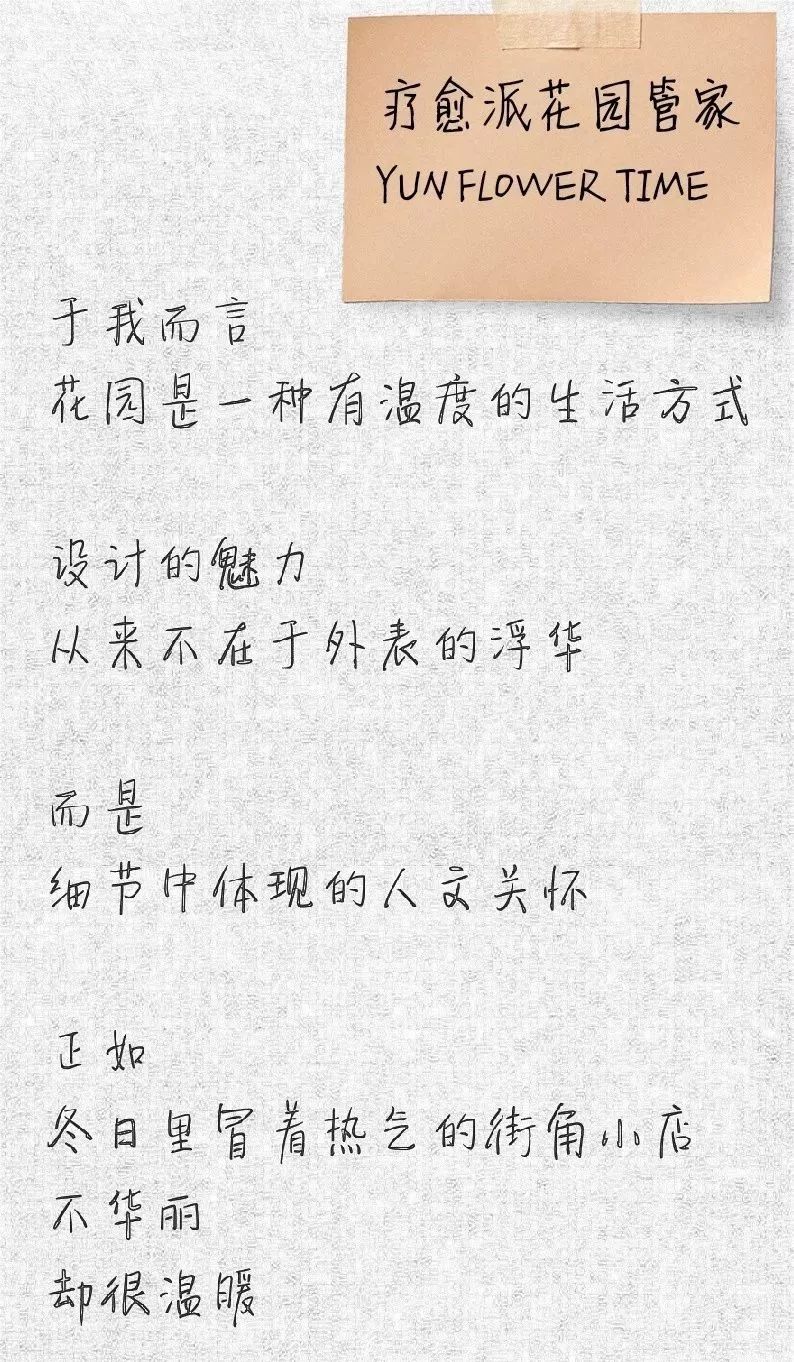 疗愈派花园管家
YUN FLOWER TIME
于我而言
花园是一种有温度的生活方式
设计的魅力
从来不在于外表的浮华
而是
细节中体现的人文关怀
正如
冬日里冒着热气的街角小店
不华丽
却很温暖